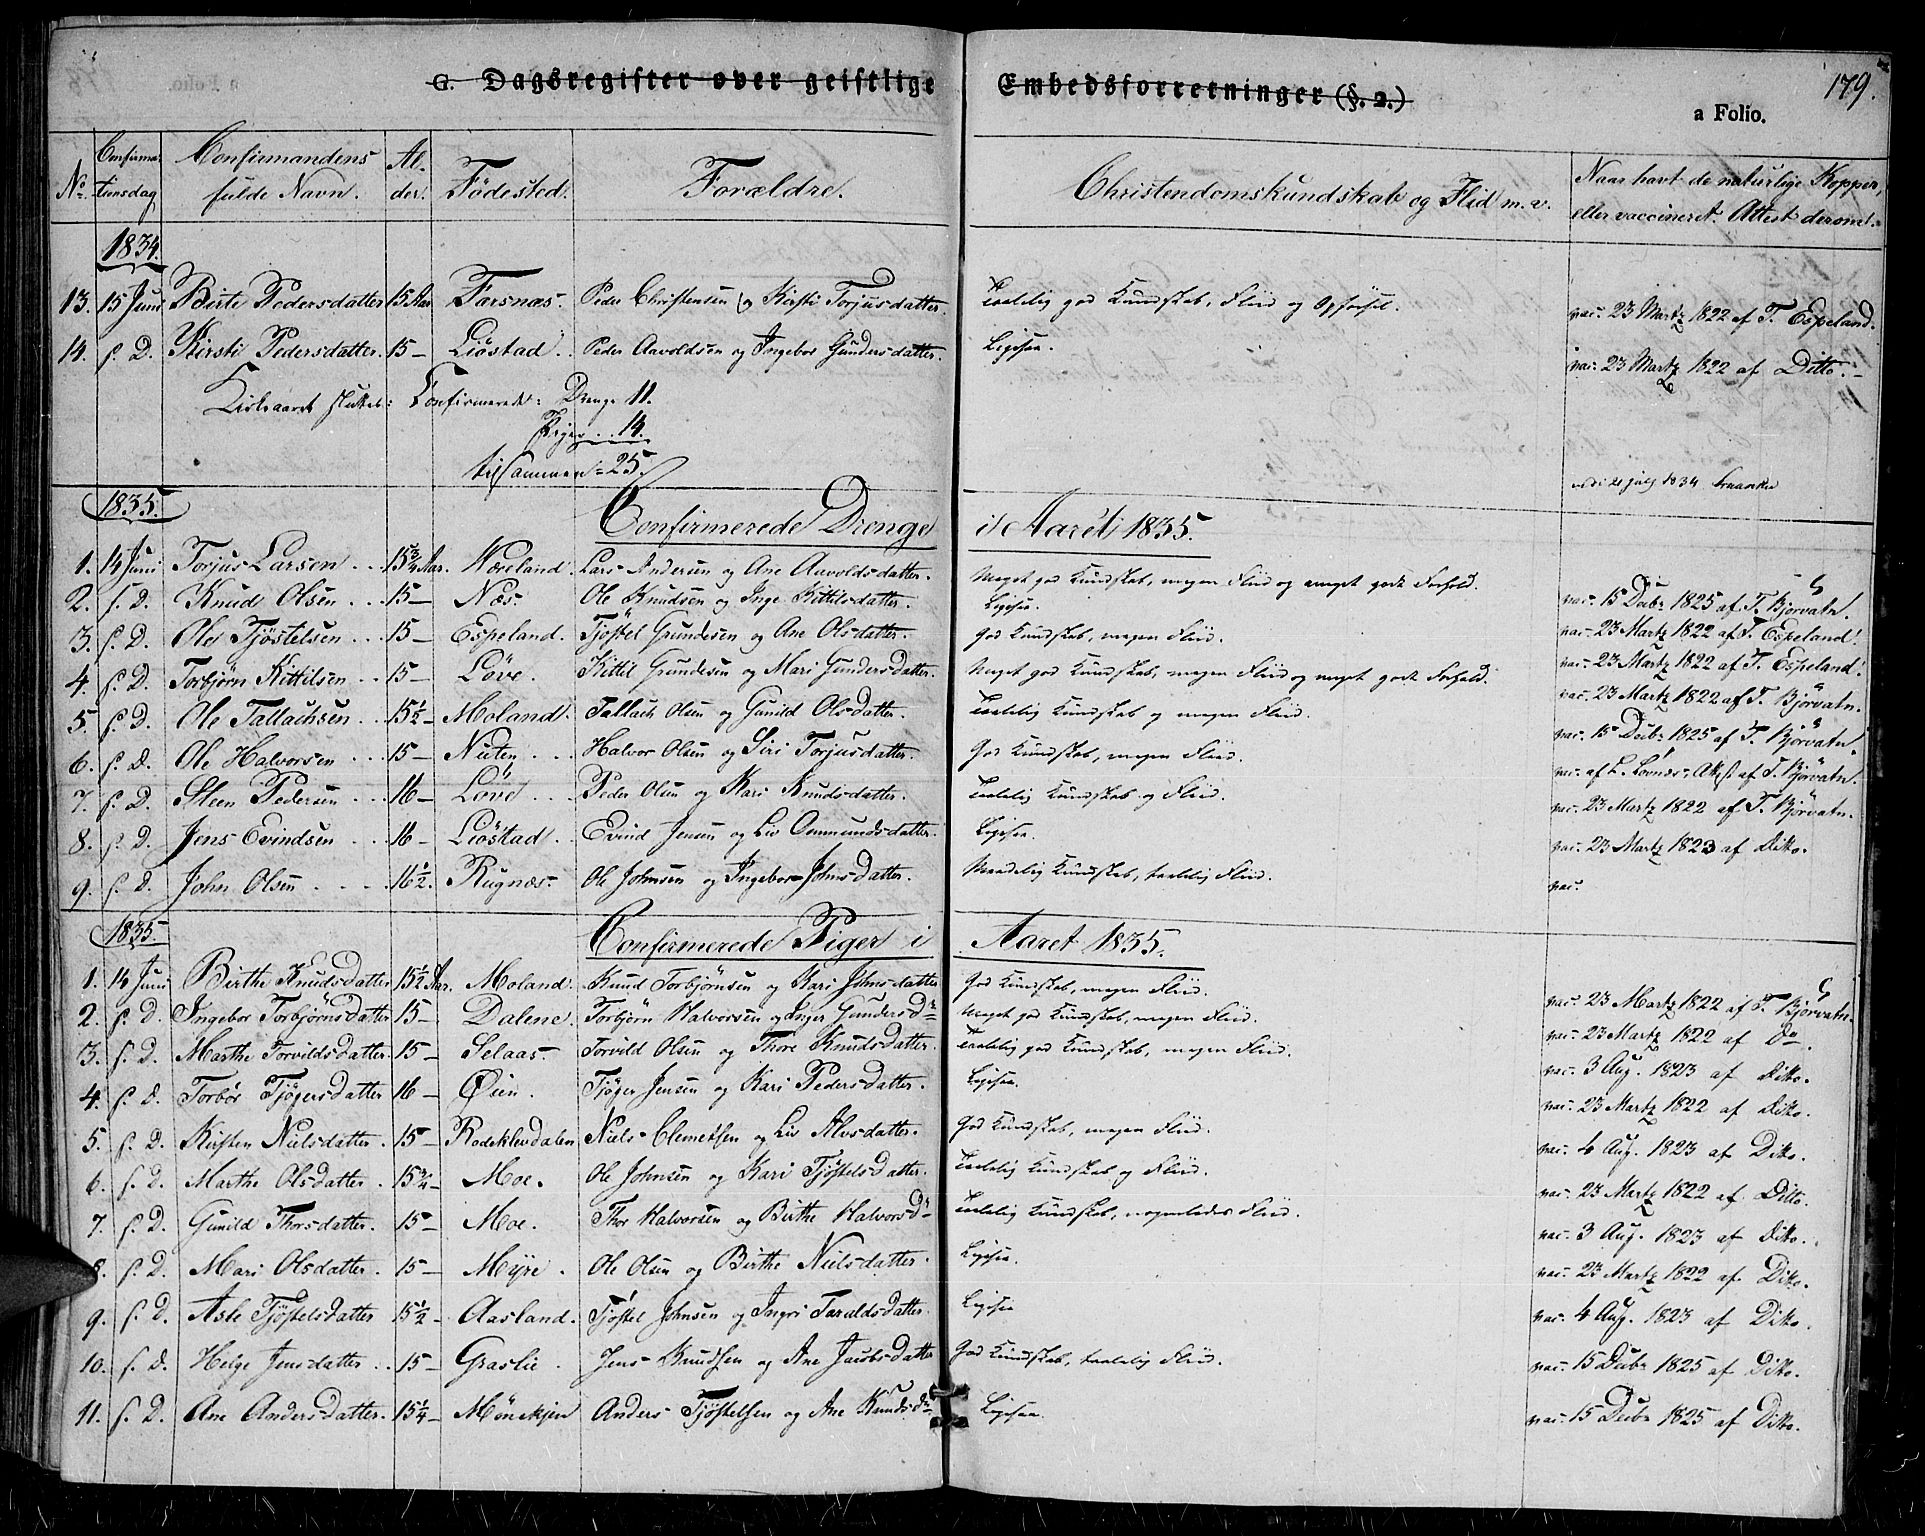 G. Dagsregister over geistlige Embedsforretninger (§. 2.) 179.
a Folio.
No. Confirmationsdag Confirmandens fulde Navn. Alder. Födested. Forældre. Christendomskundskab og Flid m. v. Naar havt de naturlige Kopper, eller vaccineret. Attest derom.
1834.
13. 15 Juni Birte Pedersdatter 15 Aar. Farsnæs. Peder Christensen og Kirsti Torjusdatter. Taalelig god Kundskab, Fliid og Opförsel. vac. 23 Martz 1822 af T. Espeland.
14. s. D. Kirsti Pedersdatter. 15 — Liöstad. Peder Aavoldsen og Ingebor Gundersdatter. Ligesaa. vac. 23 Martz 1822 af Ditto.
Kirkeaaret sluttet: Confirmerede: Drenge 11.
Piger 14.
tilsammen = 25.
1834
1835. Confirmerede Drenge i Aaret 1835.
1. 14 Juni Torjus Larsen 15 3/4 Aar. Væreland. Lars Andersen og Ane Aavoldsdatter. Meget god Kundskab, megen Fliid og meget godt Forhold. vac. 15 Decbr 1825 af T. Björvatn.
2. s. D. Knud Olsen 15 — Næs. Ole Knudsen og Inge Kittilsdatter. Ligesaa. vac. 23 Martz 1822 af T. Espeland.
3. s. D. Ole Tjöstelsen 15 — Espeland. Tjöstel Gundesen og Ane Olsdatter. God Kundskab, megen Fliid. vac. 23 Martz 1822 af T. Espeland.
4. s. D. Torbjörn Kittilsen 15 — Löve. Kittil Gundesen og Mari Gundersdatter. Meget god Kundskab, megen Fliid og meget godt Forhold. vac. 23 Martz 1822 af T. Björvatn.
5. s. D. Ole Tallachsen 15 1/2 — Moland. Tallach Olsen og Gunild Olsdatter. Taalelig Kundskab og megen Fliid. vac. 15 Decbr 1825 af T. Björvatn.
6. s. D. Ole Halvorsen 15 — Nuten Halvor Olsen og Siri Torjusdatter. God Kundskab, megen Fliid. vac. af L. Lovnæs, Attest af T. Björvatn.
7. s. D. Steen Pedersen 16 — Löve Peder Olsen og Kari Knudsdatter. Taalelig Kundskab og Fliid. vac. 23 Martz 1822 af T. Björvatn.
8. s. D. Jens Evindsen 16 — Liöstad Evind Jensen og Liv Omundsdatter. Ligesaa. vac. 23 Martz 1823 af Ditto.
9. s. D. John Olsen 16 1/2. Rugnæs. Ole Johnsen og Ingebor Johnsdatter. Maadelig Kundskab, taalelig Fliid. vac.
1835. Confirmerede Piger i Aaret 1835.
1. 14 Juni Birthe Knudsdatter 15 1/2 Aar. Moland. Knud Torbjörnsen og Kari Johnsdatter God Kundskab, megen Fliid. vac. 23 Martz 1822 af T. Björvatn.
2. s. D. Ingebor Torbjörnsdatter 15 — Dalene. Torbjörn Halvorsen og Inger Gundersdr Meget god Kundskab, megen Fliid. vac. 23 Martz 1822 af Do.
3. s. D. Marthe Torvildsdatter 15 — Selaas. Torvild Olsen og Thore Knudsdatter. Taalelig god Kundskab, megen Fliid. vac. 3 Aug. 1823 af Ditto.
4. s. D. Torbör Tjögersdatter 16 — Öien. Tjöger Jensen og Kari Pedersdatter. Ligesaa. vac. 23 Martz 1822 af Ditto.
5. s. D. Kirsten Nielsdatter. 15 — Rodeklevdalen Niels Clemetsen og Liv Alvsdatter. God Kundskab, megen Fliid. vac. 4 Aug. 1823 af Ditto.
6. s. D. Marthe Olsdatter. 15 3/4 — Moe. Ole Johnsen og Kari Tjöstelsdatter. Taalelig Kundskab og Fliid. vac. 23 Martz 1822 af Ditto.
7. s. D. Gunild Thorsdatter. 15 — Moe. Thor Halvorsen og Birthe Halvorsdr Taalelig Kundskab, nogenledes Fliid. vac. 3 Aug. 1823 af Ditto.
8. s. D. Mari Olsdatter. 15 — Myre. Ole Olsen og Birthe Nielsdatter. Ligesaa. vac. 23 Martz 1822 af Ditto.
9. s. D. Asle Tjöstelsdatter 15 1/2 — Aasland. Tjöstel Johnsen og Ingri Taraldsdatter. Ligesaa vac. 4 Aug. 1823 af Ditto.
10. s. D. Helge Jensdatter 15 — Graslie. Jens Knudsen og Ane Jacobsdatter God Kundskab, taalelig Fliid. vac. 15 Decbr 1825 af Ditto.
11. s. D. Ane Andersdatter. 15 1/4 — Mönekjen Anders Tjöstelsen og Ane Knudsdr Ligesaa. vac. 15 Decbr 1825 af Ditto.